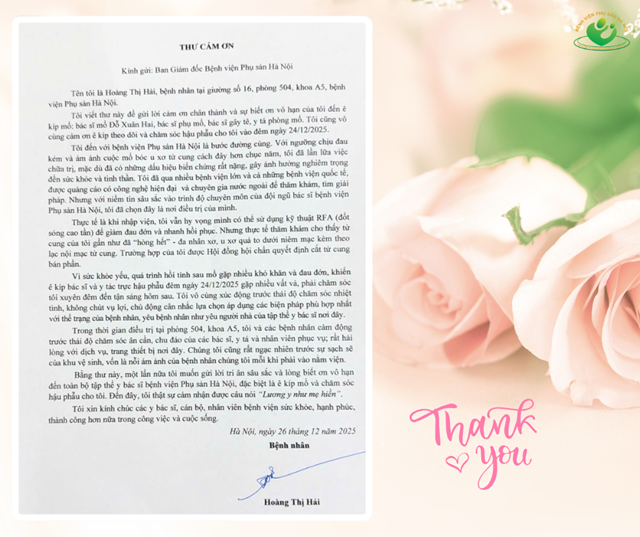 THƯ CẢM ƠN
Kính gửi: Ban Giám đốc Bệnh viện Phụ sản Hà Nội
Tên tôi là Hoàng Thị Hải, bệnh nhân tại giường số 16, phòng 504, khoa A5, bệnh
viện Phụ sản Hà Nội.
Tôi viết thư này để gửi lời cảm ơn chân thành và sự biết ơn vô hạn của tôi đến ê
kíp mổ: bác sĩ mổ Đỗ Xuân Hai, bác sĩ phụ mổ, bác sĩ gây tê, y tá phòng mổ. Tôi cũng vô
cùng cảm ơn ê kíp theo dõi và chăm sóc hậu phẫu cho tôi vào đêm ngày 24/12/2025.
Tôi đến với bệnh viện Phụ sản Hà Nội là bước đường cùng. Với ngưỡng chịu đau
kém và ám ảnh cuộc mổ bóc u xơ tử cung cách đây hơn chục năm, tôi đã lần lữa việc
chữa trị, mặc dù đã có những dấu hiệu biến chứng rất nặng, gây ảnh hưởng nghiêm trọng
đến sức khỏe và tinh thần. Tôi đã qua nhiều bệnh viện lớn và cả những bệnh viện quốc tế,
được quảng cáo có công nghệ hiện đại và chuyên gia nước ngoài để thăm khám, tìm giải
pháp. Nhưng với niềm tin sâu sắc vào trình độ chuyên môn của đội ngũ bác sĩ bệnh viện
Phụ sản Hà Nội, tôi đã chọn đây là nơi điều trị của mình.
Thực tế là khi nhập viện, tôi vẫn hy vọng mình có thể sử dụng kỹ thuật RFA (đốt
sóng cao tần) để giảm đau đớn và nhanh hồi phục. Nhưng thực tế thăm khám cho thấy tử
cung của tôi gần như đã "hỏng hết" - đa nhân xơ, u xơ quá to dưới niêm mạc kèm theo
lạc nội mạc tử cung. Trường hợp của tôi được Hội đồng hội chẩn quyết định cắt tử cung
bán phần.
Vì sức khỏe yếu, quá trình hồi tỉnh sau mổ gặp nhiều khó khăn và đau đớn, khiến
ê kíp bác sĩ và y tác trực hậu phẫu đêm ngày 24/12/2025 gặp nhiều vất vả, phải chăm sóc
tôi xuyên đêm đến tận sáng hôm sau. Tôi vô cùng xúc động trước thái độ chăm sóc nhiệt
tình, không chút vụ lợi, chủ động cân nhắc lựa chọn áp dụng các biện pháp phù hợp nhất
với thể trạng của bệnh nhân, yêu bệnh nhân như yêu người nhà của tập thể y bác sĩ nơi đây.
Trong thời gian điều trị tại phòng 504, khoa A5, tôi và các bệnh nhân cảm động
trước thái độ chăm sóc ân cần, chu đáo của các bác sĩ, y tá và nhân viên phục vụ; rất hài
lòng với dịch vụ, trang thiết bị nơi đây. Chúng tôi cũng rất ngạc nhiên trước sự sạch sẽ
của khu vệ sinh, vốn là nỗi ám ảnh của bệnh nhân chúng tôi mỗi khi phải vào nằm viện.
Bằng thư này, một lần nữa tôi muốn gửi lời tri ân sâu sắc và lòng biết ơn vô hạn
đến toàn bộ tập thể y bác sĩ bệnh viện Phụ sản Hà Nội, đặc biệt là ê kíp mổ và chăm sóc
hậu phẫu cho tôi. Đến đây, tôi thật sự cảm nhận được câu nói "Lương y như mẹ hiền".
Tôi xin kính chúc các y bác sĩ, cán bộ, nhân viên bệnh viện sức khỏe, hạnh phúc,
thành công hơn nữa trong công việc và cuộc sống.
Hà Nội, ngày 26 tháng 12 năm 2025
Bệnh nhân
Hoàng Thị Hải
Thank
you